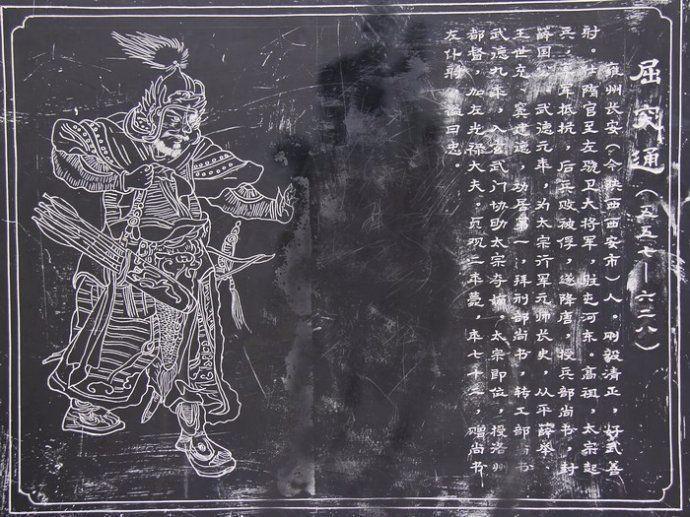 屈突通(五五七—六二八)
雍州长安(今陕西西安市)人。刚毅清正,好武善
射。隋官至左骁卫大将军,驻屯河东。高祖,太宗起
兵,军抵抗,后兵败被俘,遂降唐,授兵部尚书,封
国,武德元年,为太宗行军元帅长史,从平薛举
王世充,窦建德,功居第一;拜刑部尚书,转工部尚书
武德九年,入玄武门协助太宗夺,太宗即位,授洛州
都督,加左光禄大夫。贞观二年薨,年七十二,赠尚书
左仆射,谥曰忠。